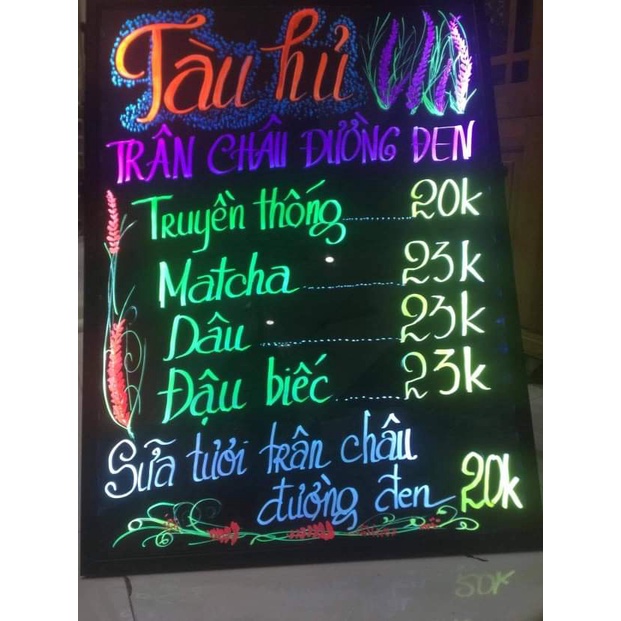 Tàu hủ
TRÂN CHÂU ĐƯỜNG ĐEN
Truyền thống 20k
Matcha 23k
Dâu 23k
Đậu biếc 23k
Sữa tươi trân châu
đường đen 20k
50K